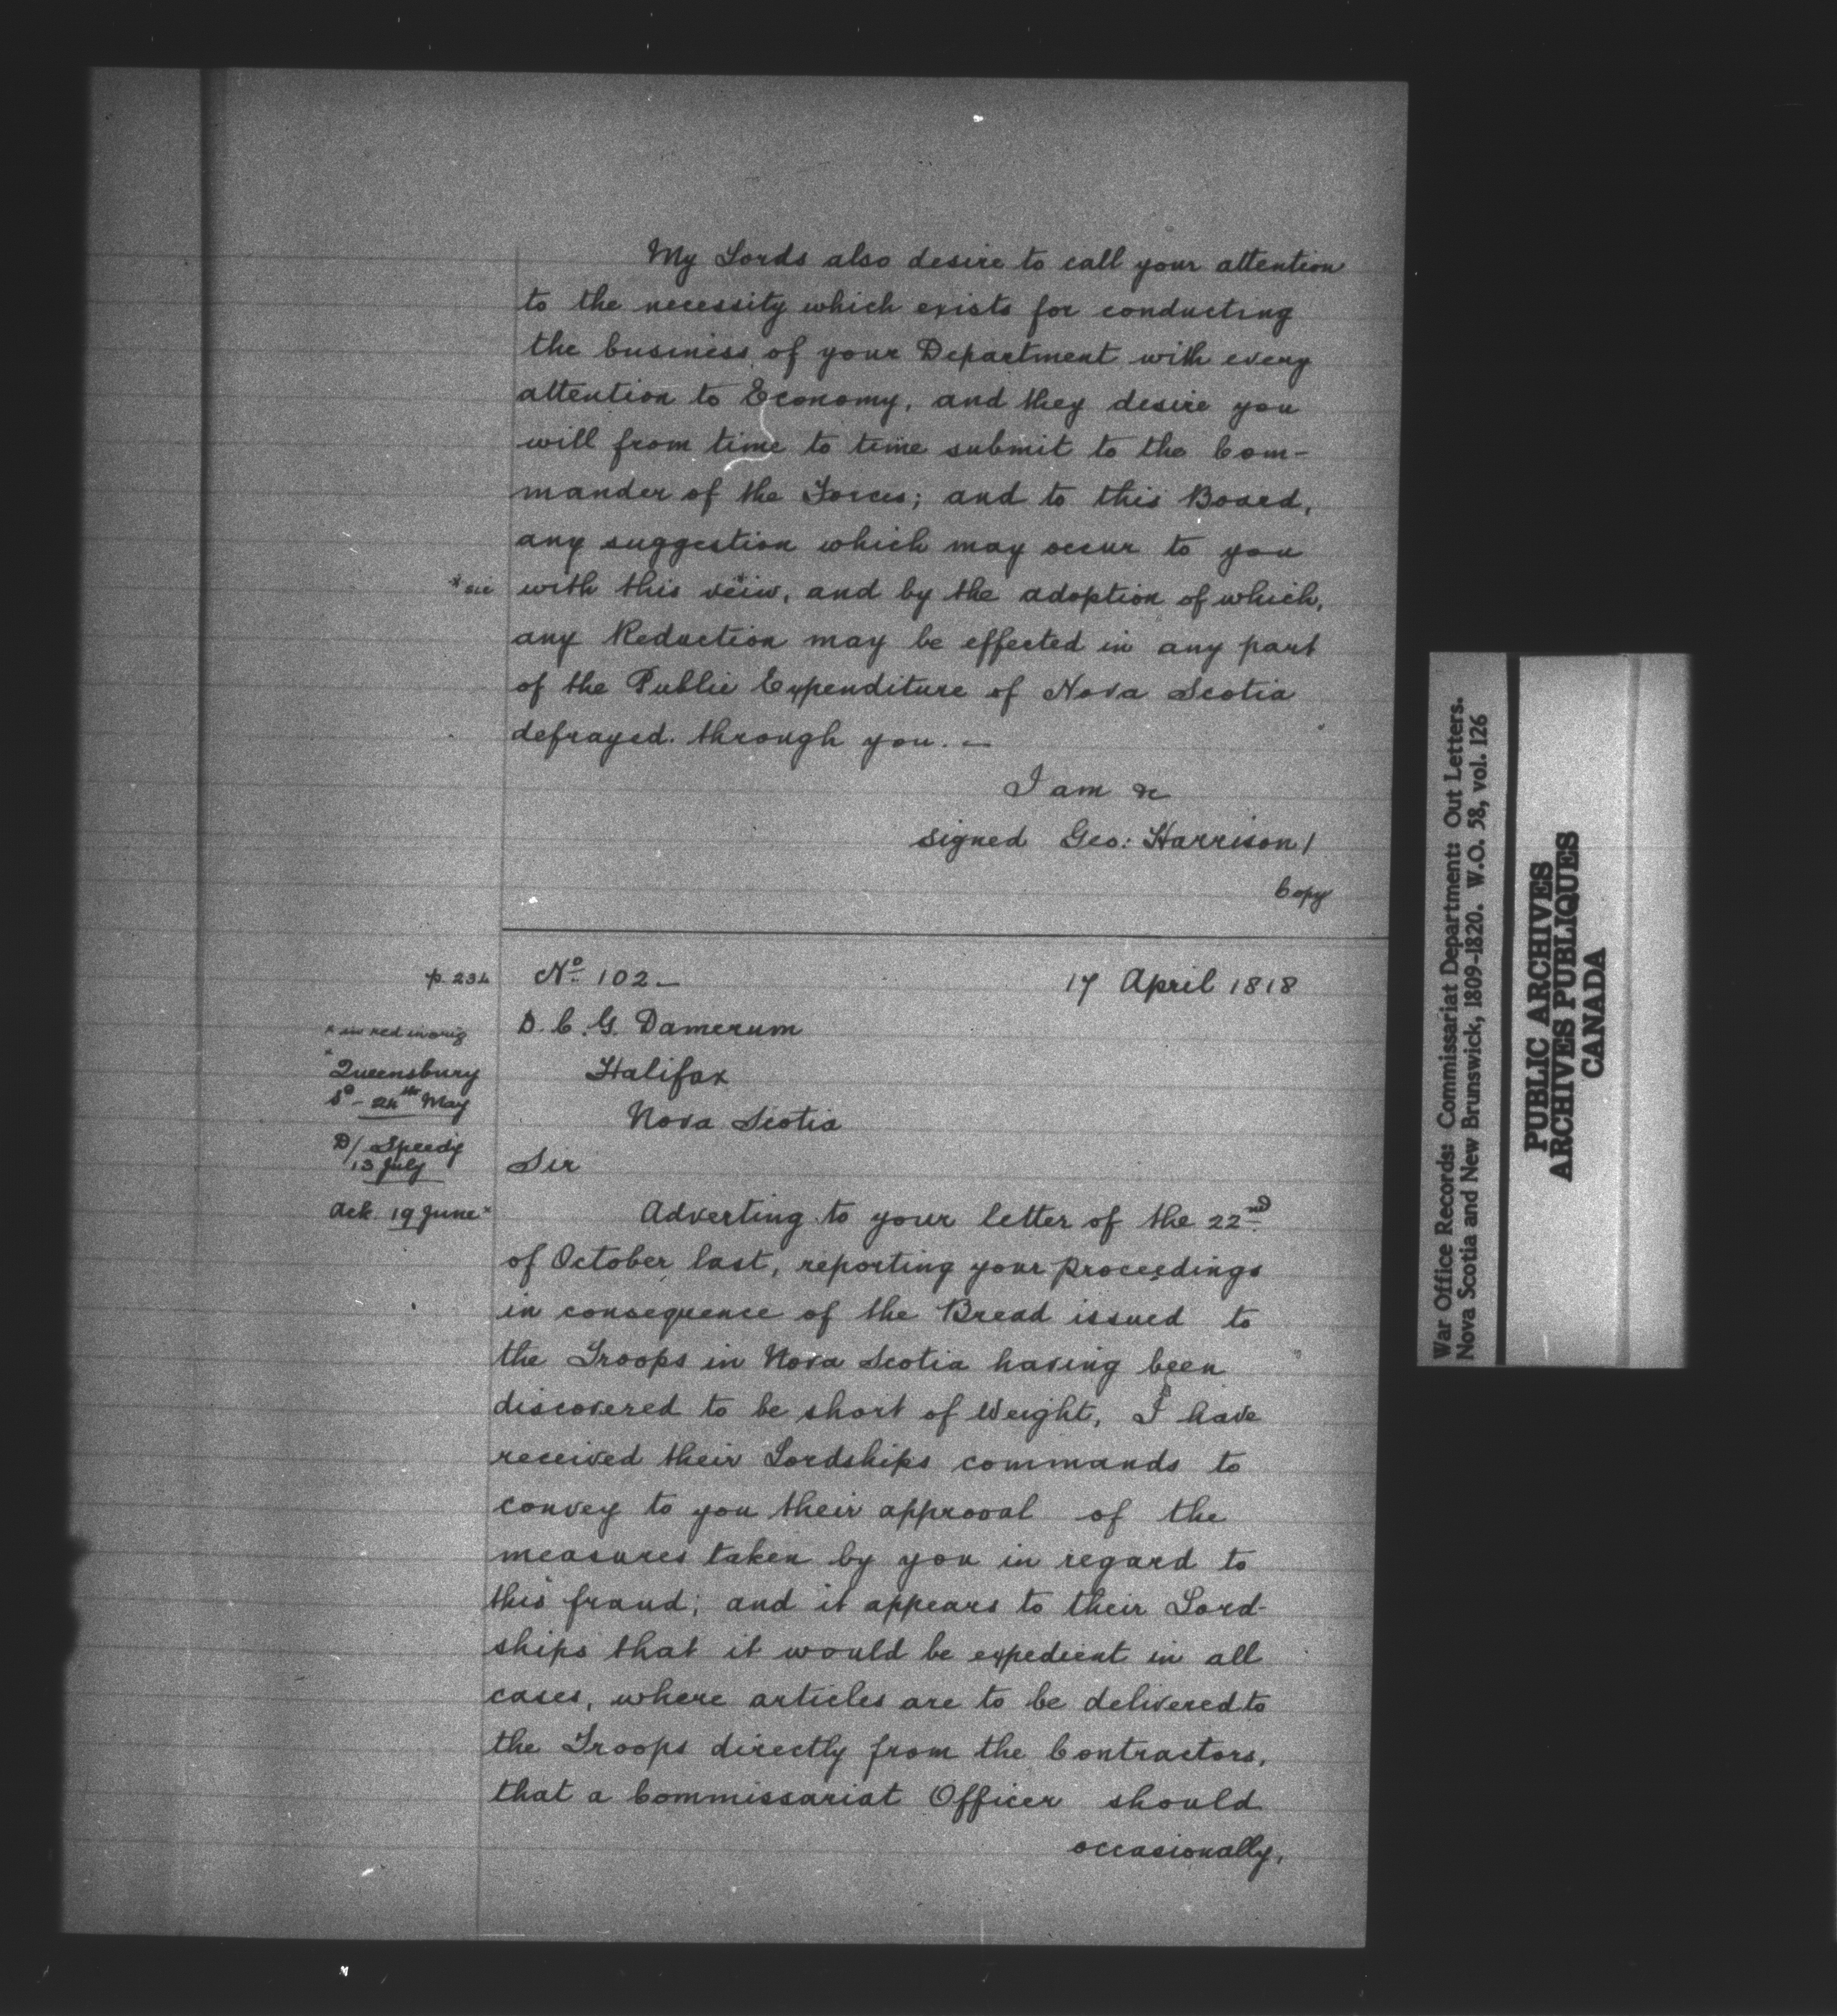 My Lords also desire to call your attention
to the necessity which exists for conducting
the business of your Department with every
attention to Economy, and they desire you
will from time to time submit to the Com-
mander of the Forces; and to this Board,
any suggestion which may occur to you
*sic with this veiw,* and by the adoption of which,
any Reduction may be effected in any part
of the Public Expenditure of Nova Scotia
defrayed through you. —
I am &c
signed Geo: Harrison/
Copy
p. 234 No. 102 — 17 April 1818
* in red in orig
D. C. G. Damerum
* Queensbury
Halifax
24th May
Nova Scotia
D/ Speedy
13 July
Sir
Ack 19 June*
Adverting to your letter of the 22nd
of October last, reporting your proceedings
in consequence of the Bread issued to
the Troops in Nova Scotia having been
discovered to be short of Weight, I have
received their Lordships commands to
convey to you their approval of the
measures taken by you in regard to
this fraud; and it appears to their Lord-
ships that it would be expedient in all
cases, where articles are to be delivered to
the Troops directly from the Contractors,
that a Commissariat Officer should
occasionally,
War Office Records: Commissariat Department: Out Letters.
Nova Scotia and New Brunswick, 1809-1820. W.O. 58, vol. 126
PUBLIC ARCHIVES
ARCHIVES PUBLIQUES
CANADA